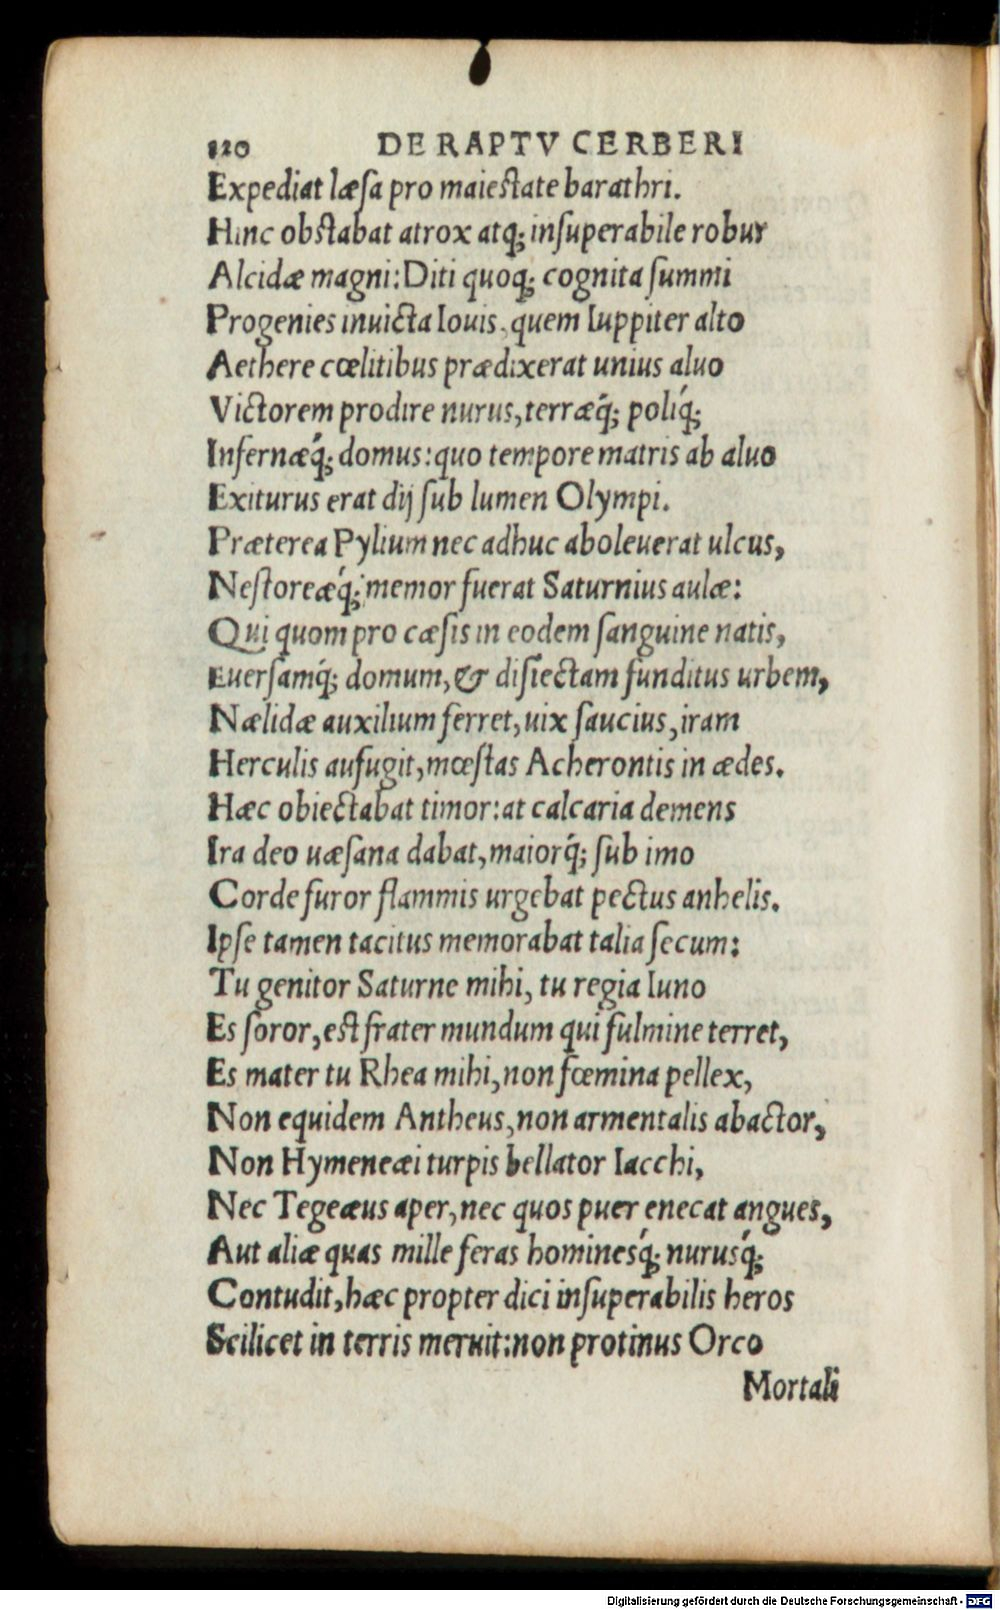 120 DE RAPTV CERBERI
Expediat læſa pro maieſtate barathri.
Hinc obſtabat atrox atq; inſuperabile robur
Alcidæ magni: Diti quoq; cognita ſummi
Progenies inuicta Iouis, quem Iuppiter alto
Aethere cœlitibus prædixerat unius aluo
Victorem prodire nurus, terræq́; poliq́;
Infernæq́; domus: quo tempore matris ab aluo
Exiturus erat dij ſub lumen Olympi.
Præterea Pylium nec adhuc aboleuerat ulcus,
Neſtoreæq́; memor fuerat Saturnius aulæ:
Qui quom pro cæſis in eodem ſanguine natis,
Euerſamq́; domum, & diſiectam funditus urbem,
Nælidæ auxilium ferret, uix ſaucius, iram
Herculis aufugit, mœſtas Acherontis in ædes.
Hæc obiectabat timor: at calcaria demens
Ira deo uæſana dabat, maiorq́; ſub imo
Corde furor flammis urgebat pectus anhelis.
Ipſe tamen tacitus memorabat talia ſecum:
Tu genitor Saturne mihi, tu regia Iuno
Es ſoror, eſt frater mundum qui fulmine terret,
Es mater tu Rhea mihi, non fœmina pellex,
Non equidem Antheus, non armentalis abactor,
Non Hymeneæi turpis bellator Iacchi,
Nec Tegeæus aper, nec quos puer enecat angues,
Aut aliæ quas mille feras hominesq́; nurusq́;
Contudit, hæc propter dici inſuperabilis heros
Scilicet in terris meruit: non protinus Orco
Mortali
Digitalisierung gefördert durch die Deutsche Forschungsgemeinschaft - DFG